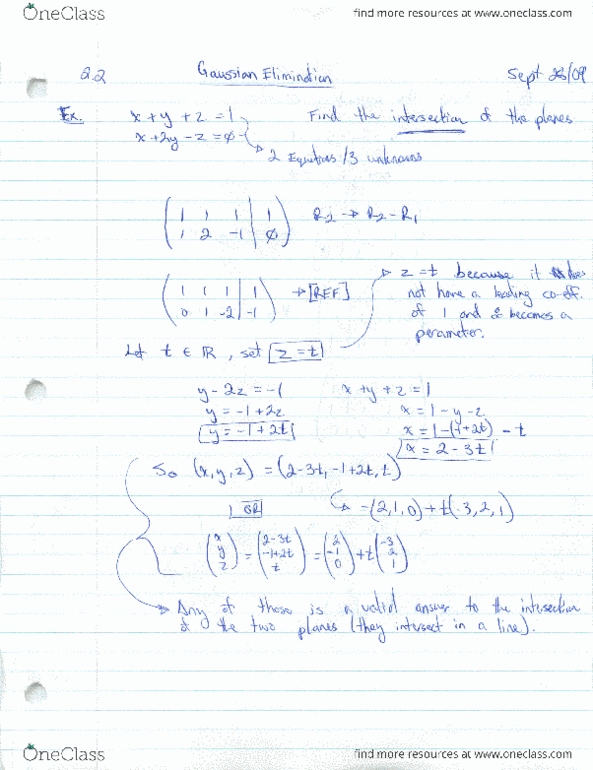 OneClass find more resources at www.oneclass.com
2.2 Gaussian Elimination Sept 28/09
Ex. x + y + z = 1 Find the intersection of the planes
x + 2y - z = 0
2 Equations / 3 unknowns
( 1 1 1 | 1 ) R2 → R2 - R1
( 1 2 -1 | 0 )
( 1 1 1 | 1 ) → [REF]
( 0 1 -2 | -1 )
z = t because it does
not have a leading co-eff.
of 1 and so becomes a
perameter.
Let t ∈ ℝ, set z = t
y - 2z = -1 x + y + z = 1
y = -1 + 2z x = 1 - y - z
y = -1 + 2t x = 1 - (-1 + 2t) - t
x = 2 - 3t
So (x, y, z) = (2 - 3t, -1 + 2t, t)
OR = (2, 1, 0) + t(-3, 2, 1)
( x ) = ( 2 - 3t ) = ( 2 ) + t ( -3 )
( y ) ( -1 + 2t ) ( -1 ) ( 2 )
( z ) ( t ) ( 0 ) ( 1 )
Any of those is a valid answer to the intersection
of the two planes (they intersect in a line).
OneClass find more resources at www.oneclass.com